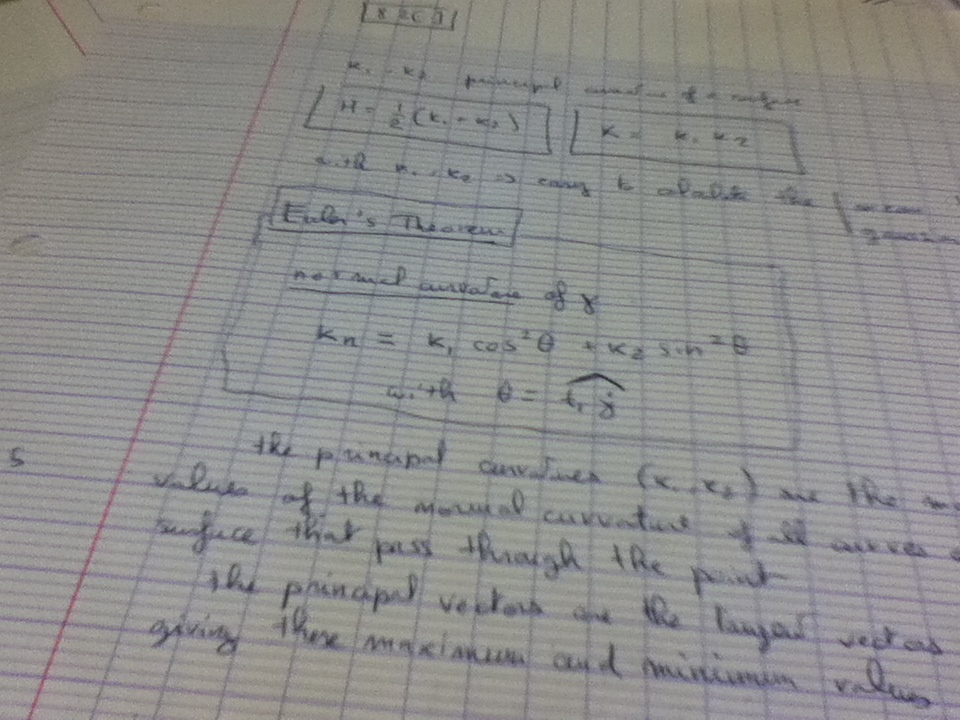 κ₁, κ₂ principal curvatures of a surface
H = 1/2 (κ₁ + κ₂) K = κ₁ κ₂
with κ₁, κ₂ => easy to calculate the mean
gaussian
Euler's Theorem
normal curvature of γ
κn = κ₁ cos²θ + κ₂ sin²θ
with θ = t₁ γ̇
5
the principal curvatures (κ₁ κ₂) are the
values of the normal curvature of all curves
surface that pass through the point
the principal vectors are the tangent vectors
giving these maximum and minimum values